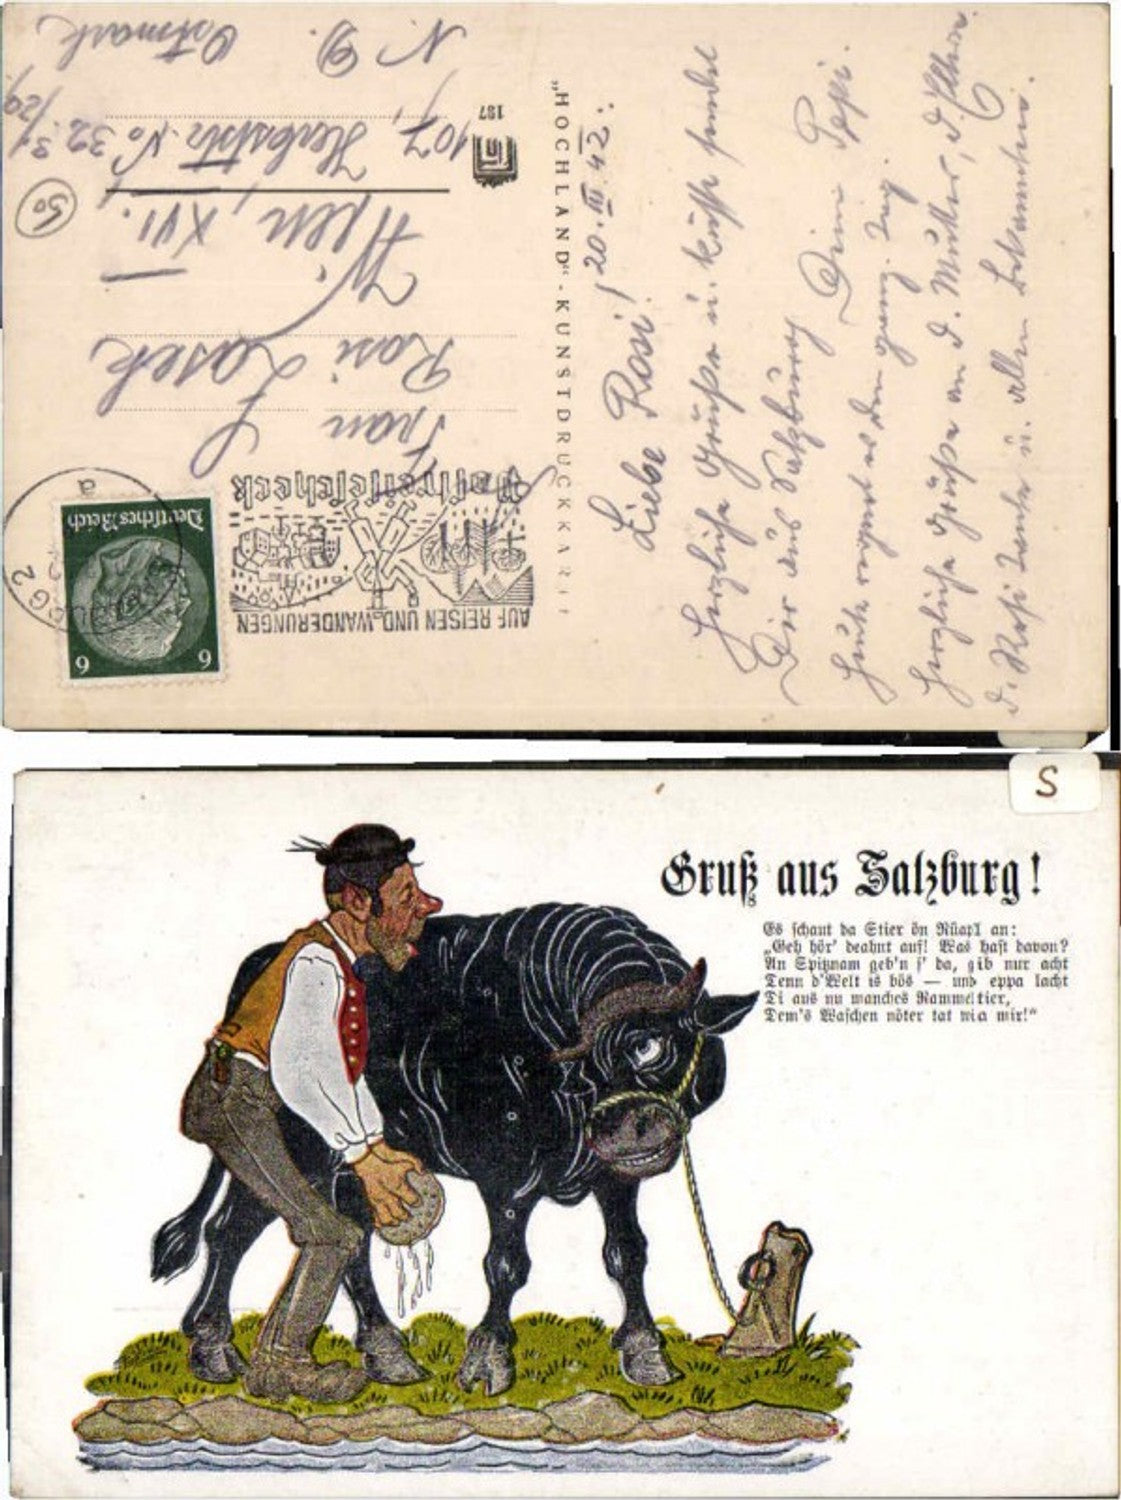 Ostmark.
N. D.
107, Herbststr. No 39
Wien, XVI.
Rosi Lasek
Frau
50
187
"HOCHLAND"-KUNSTDRUCKKARTE
AUF REISEN UND WANDERUNGEN
Postreisescheck
Deutsches Reich
6 6
SALZBURG 2
a
20. III. 42:
Liebe Rosi!
Herzliche Grüße u. Küsse sendet
Dir aus Salzburg Dein Pepi.
Heute regnet es den ganz. Tag.
Herzliche Grüße an d. Mutter, d. Eltern.
d. Resi Tante u. allen Bekannten.
S
Gruß aus Salzburg!
Es schaut da Stier ön Rüapl an:
„Geh hör' deahnt auf! Was hast davon?
An Spitznam geb'n s' da, gib nur acht
Denn d'Welt is bös — und eppa lacht
Di aus nu manches Rammeltier,
Dem's Waschen nöter tat wia mir!"